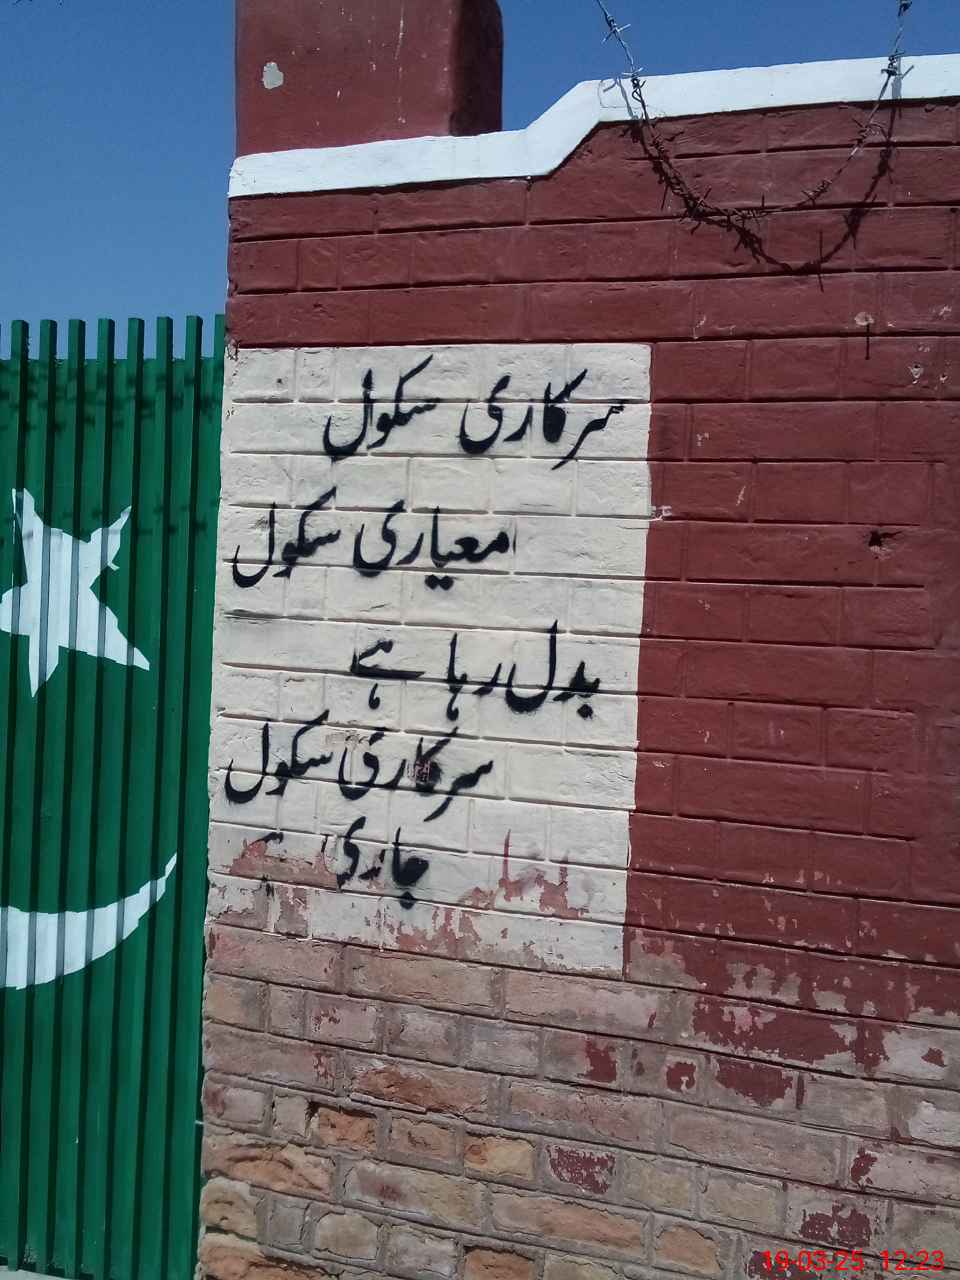 سرکاری سکول
معیاری سکول
بدل رہا ہے
سرکاری سکول
جاری
19-03-25 12:23